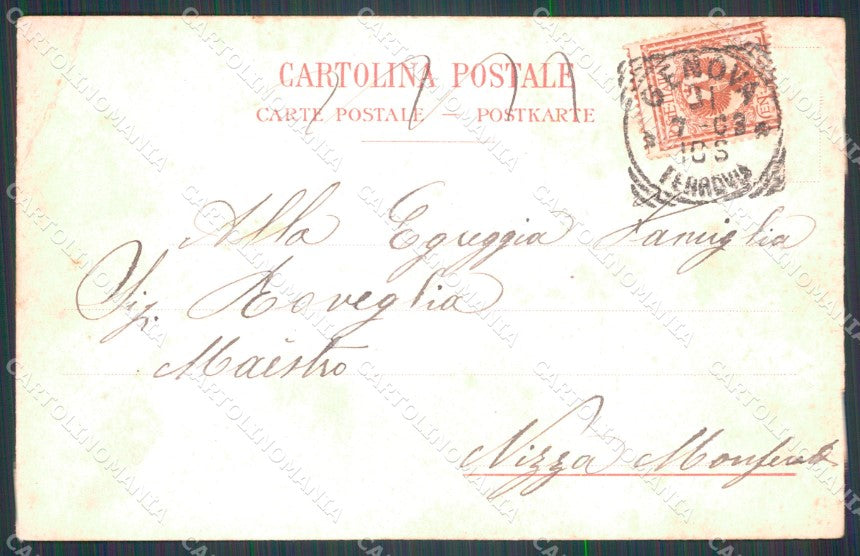 CARTOLINA POSTALE
CARTE POSTALE — POSTKARTE
GENOVA
FERROVIA
Alla Egreggia Famiglia
Sig. Roveglia
Maestro
Nizza Monferrato
CARTOLINOMANIA